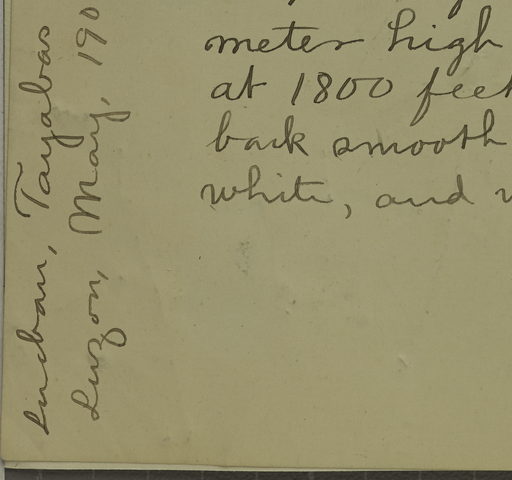 meter high
at 1800 feet
bark smooth
white, and
Lucban, Tayabas
Luzon, May, 190